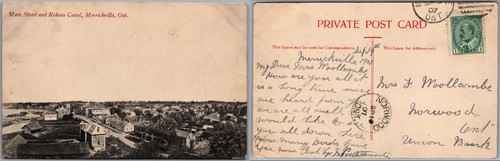 Main Street and Rideau Canal, Merrickville, Ont.
PRIVATE POST CARD
This Space may be used for Correspondence.
This Space for Address only.
Merrickville
My Dear Mrs Woollcombe
How are you all? It
is a long time since
we heard from you
we are all well
would like to see
you all down here
How many Birds have
you now
Mrs F. Woollcombe
Norwood
Ont
Union Bank
ONT
NORWOOD
ONT.